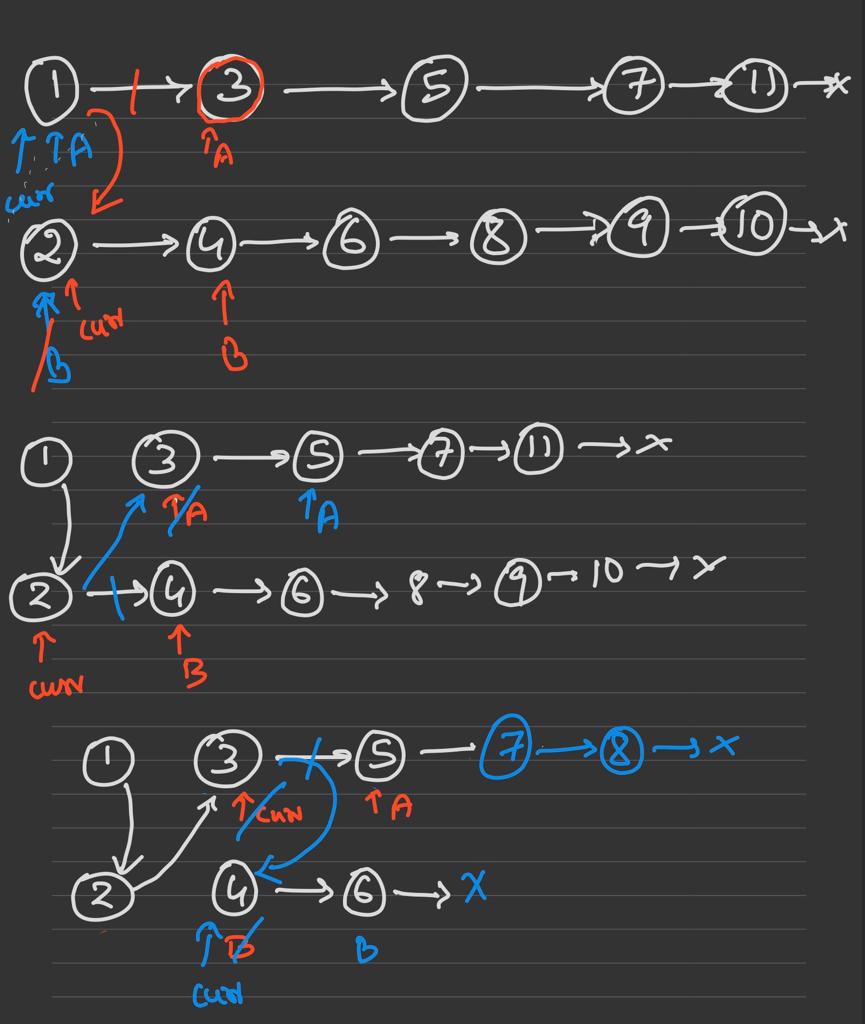 1 3 5 7 11 x
A A
curr
2 4 6 8 9 10 x
curr
B B
1 3 5 7 11 x
A A
2 4 6 8 9 10 x
curr B
1 3 5 7 8 x
curr A
2 4 6 x
B B
curr